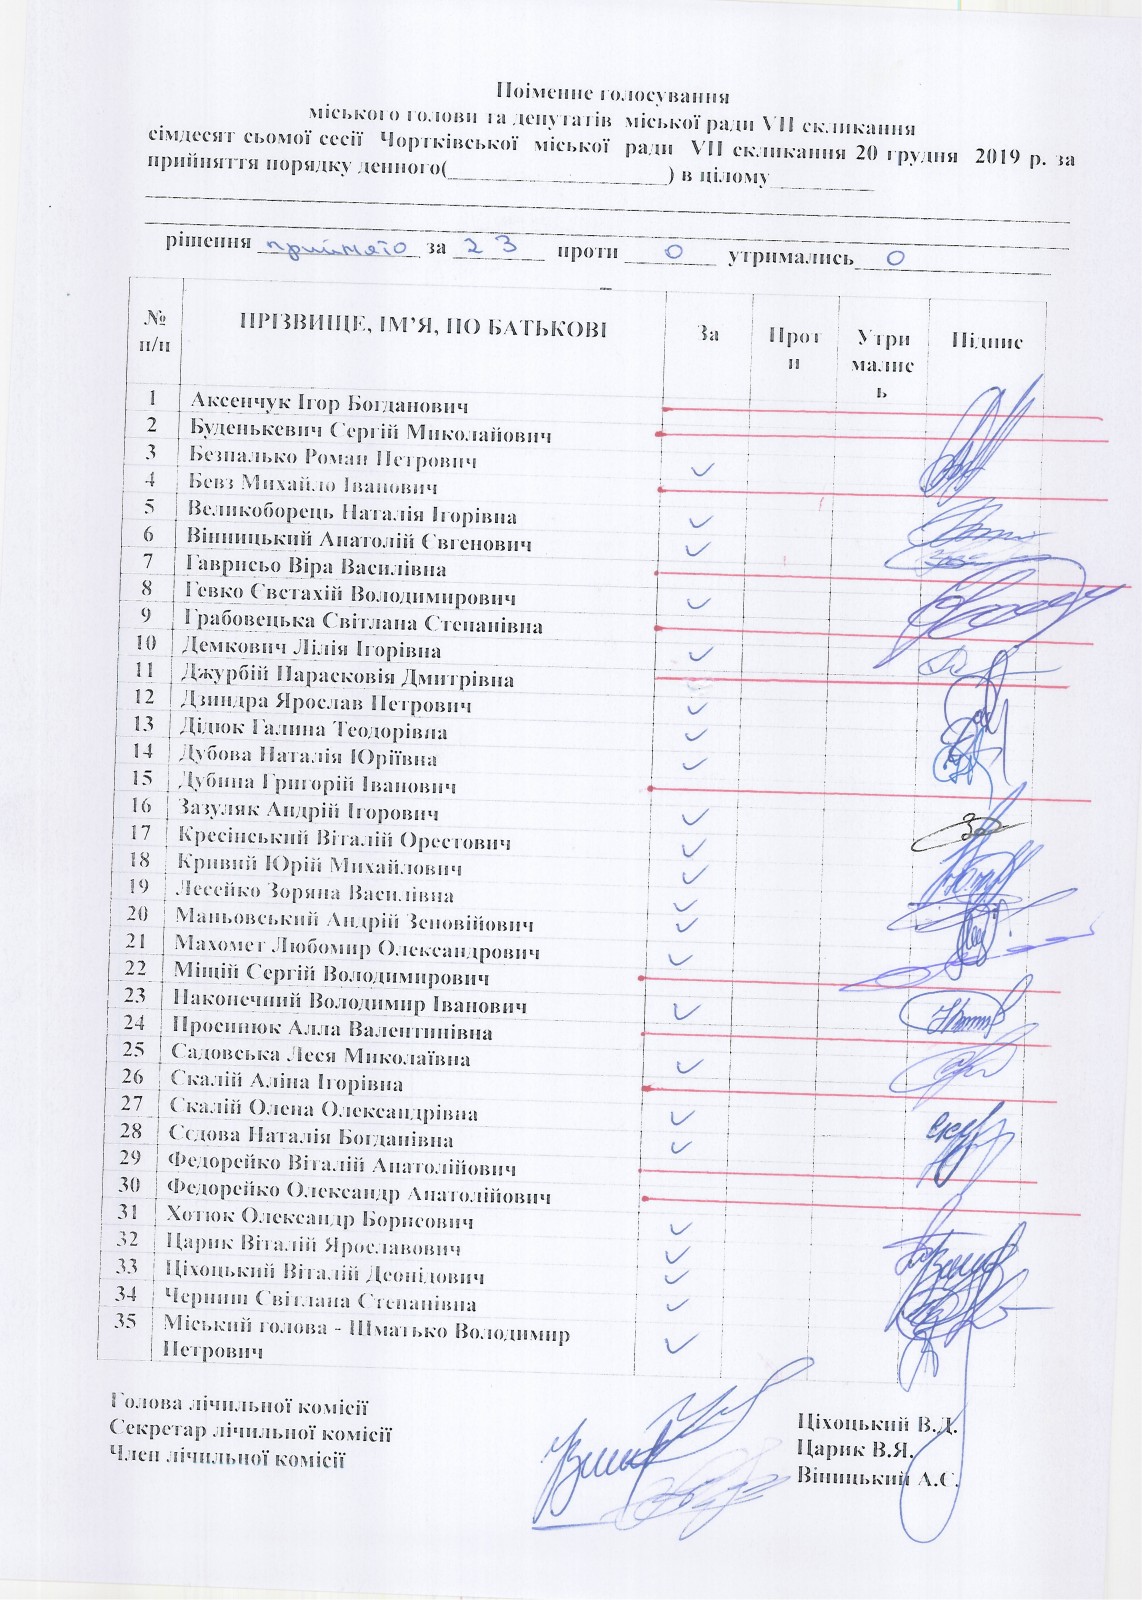 Поіменне голосування
міського голови та депутатів міської ради VII скликання
сімдесят сьомої сесії Чортківської міської ради VII скликання 20 грудня 2019 р. за
прийняття порядку денного(____________________) в цілому__________
рішення прийнято за 23 проти 0 утримались 0
№ п/п ПРІЗВИЩЕ, ІМ'Я, ПО БАТЬКОВІ За Проти Утримались Підпис
1 Аксенчук Ігор Богданович
2 Буденькевич Сергій Миколайович
3 Безпалько Роман Петрович ✓
4 Бевз Михайло Іванович
5 Великоборець Наталія Ігорівна ✓
6 Вінницький Анатолій Євгенович ✓
7 Гаврисьо Віра Василівна
8 Гевко Євстахій Володимирович ✓
9 Грабовецька Світлана Степанівна
10 Демкович Лілія Ігорівна ✓
11 Джурбій Парасковія Дмитрівна
12 Дзиндра Ярослав Петрович ✓
13 Дідюк Галина Теодорівна ✓
14 Дубова Наталія Юріївна ✓
15 Дубина Григорій Іванович
16 Зазуляк Андрій Ігорович ✓
17 Кресінський Віталій Орестович ✓
18 Кривий Юрій Михайлович ✓
19 Лесейко Зоряна Василівна ✓
20 Маньовський Андрій Зеновійович ✓
21 Махомет Любомир Олександрович ✓
22 Міщій Сергій Володимирович
23 Наконечний Володимир Іванович ✓
24 Просинюк Алла Валентинівна
25 Садовська Леся Миколаївна ✓
26 Скалій Аліна Ігорівна
27 Скалій Олена Олександрівна ✓
28 Сєдова Наталія Богданівна ✓
29 Федорейко Віталій Анатолійович
30 Федорейко Олександр Анатолійович
31 Хотюк Олександр Борисович ✓
32 Царик Віталій Ярославович ✓
33 Ціхоцький Віталій Деонідович ✓
34 Черниш Світлана Степанівна ✓
35 Міський голова - Шматько Володимир
Петрович ✓
Голова лічильної комісії Ціхоцький В.Д.
Секретар лічильної комісії Царик В.Я.
Член лічильної комісії Вінницький А.Є.